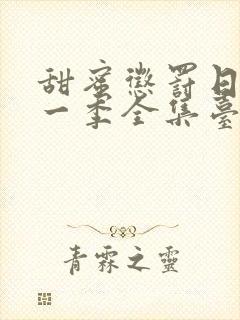 甜蜜懲罰日
一季全集臺
青霖之靈